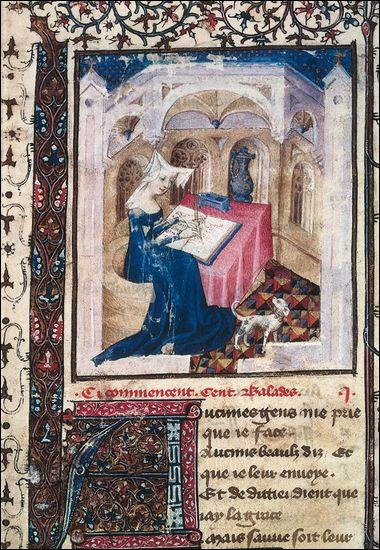 Cy commencent Cent Balades. I
Aucunes gens me prie
que ie face
Aucuns beaulx diz Et
que ie leur envoye
Et de dittier dient que
iay la grace
Mais sauue soit leur